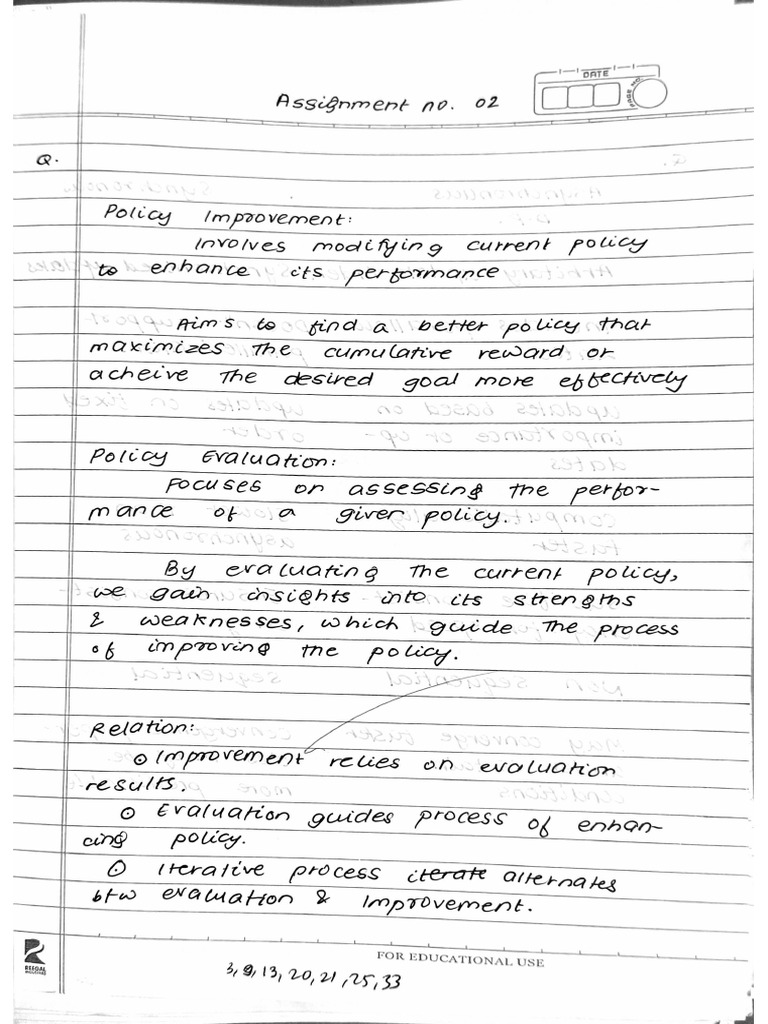 DATE
PAGE NO.
Assignment no. 02
Q.
Policy Improvement:
Involves modifying current policy
to enhance its performance
Aims to find a better policy that
maximizes the cumulative reward or
acheive the desired goal more effectively
Policy Evaluation:
Focuses on assessing the perfor-
mance of a given policy.
By evaluating the current policy,
we gain insights into its strengths
& weaknesses, which guide the process
of improving the policy.
Relation:
⊙ Improvement relies on evaluation
results.
⊙ Evaluation guides process of enhan-
cing policy.
⊙ Iterative process iterate alternates
btw evaluation & Improvement.
REEGAL
FOR EDUCATIONAL USE
3,9,13,20,21,25,33